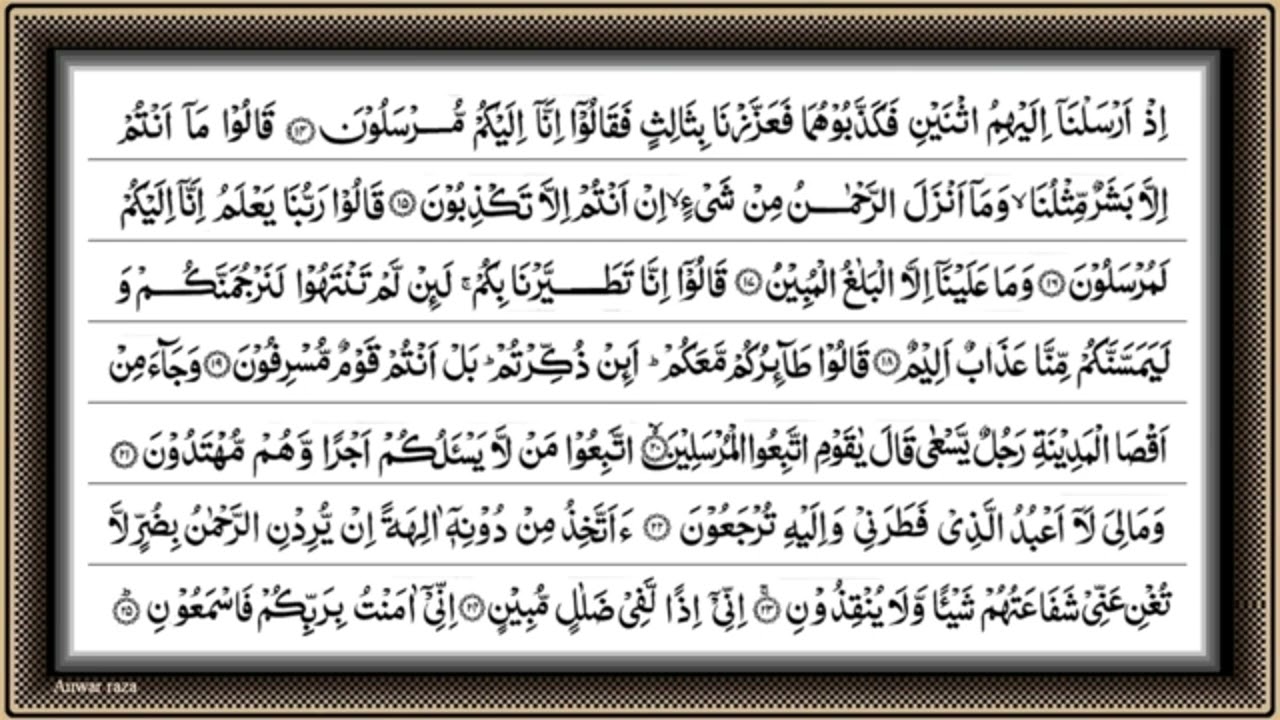 اِذْ اَرْسَلْنَاۤ اِلَیْهِمُ اثْنَیْنِ فَكَذَّبُوْهُمَا فَعَزَّزْنَا بِثَالِثٍ فَقَالُوْۤا اِنَّاۤ اِلَیْكُمْ مُّرْسَلُوْنَ ﴿۱۴﴾ قَالُوْا مَاۤ اَنْتُمْ
اِلَّا بَشَرٌ مِّثْلُنَا ۙ وَمَاۤ اَنْزَلَ الرَّحْمٰنُ مِنْ شَیْءٍ ۙ اِنْ اَنْتُمْ اِلَّا تَكْذِبُوْنَ ﴿۱۵﴾ قَالُوْا رَبُّنَا یَعْلَمُ اِنَّاۤ اِلَیْكُمْ
لَمُرْسَلُوْنَ ﴿۱۶﴾ وَمَا عَلَیْنَاۤ اِلَّا الْبَلٰغُ الْمُبِیْنُ ﴿۱۷﴾ قَالُوْۤا اِنَّا تَطَیَّرْنَا بِكُمْ ۚ لَىِٕنْ لَّمْ تَنْتَهُوْا لَنَرْجُمَنَّكُمْ وَ
لَیَمَسَّنَّكُمْ مِّنَّا عَذَابٌ اَلِیْمٌ ﴿۱۸﴾ قَالُوْا طَآىِٕرُكُمْ مَّعَكُمْ ؕ اَىِٕنْ ذُكِّرْتُمْ ؕ بَلْ اَنْتُمْ قَوْمٌ مُّسْرِفُوْنَ ﴿۱۹﴾ وَجَآءَ مِنْ
اَقْصَا الْمَدِیْنَةِ رَجُلٌ یَّسْعٰی قَالَ یٰقَوْمِ اتَّبِعُوا الْمُرْسَلِیْنَ ﴿۲۰﴾ اتَّبِعُوْا مَنْ لَّا یَسْـَٔلُكُمْ اَجْرًا وَّهُمْ مُّهْتَدُوْنَ ﴿۲۱﴾
وَمَا لِیَ لَاۤ اَعْبُدُ الَّذِیْ فَطَرَنِیْ وَاِلَیْهِ تُرْجَعُوْنَ ﴿۲۲﴾ ءَاَتَّخِذُ مِنْ دُوْنِهٖۤ اٰلِهَةً اِنْ یُّرِدْنِ الرَّحْمٰنُ بِضُرٍّ لَّا
تُغْنِ عَنِّیْ شَفَاعَتُهُمْ شَیْـًٔا وَّلَا یُنْقِذُوْنِ ﴿۲۳﴾ اِنِّیْۤ اِذًا لَّفِیْ ضَلٰلٍ مُّبِیْنٍ ﴿۲۴﴾ اِنِّیْۤ اٰمَنْتُ بِرَبِّكُمْ فَاسْمَعُوْنِ ﴿۲۵﴾
Anwar raza